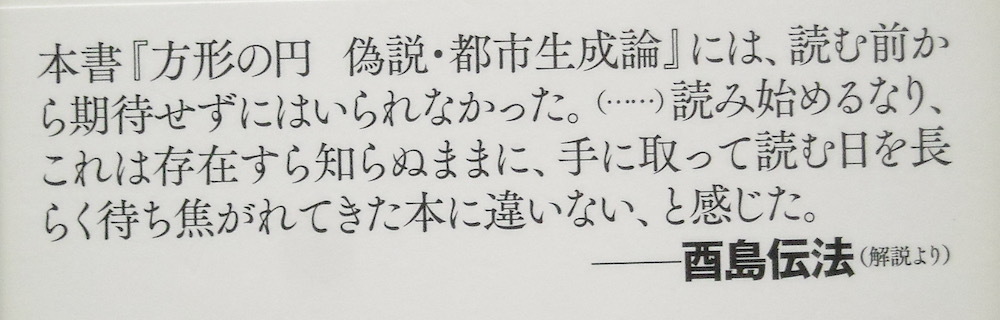 本書『方形の円　偽説・都市生成論』には、読む前か
ら期待せずにはいられなかった。（……）読み始めるなり、
これは存在すら知らぬままに、手に取って読む日を長
らく待ち焦がれてきた本に違いない、と感じた。
――酉島伝法（解説より）